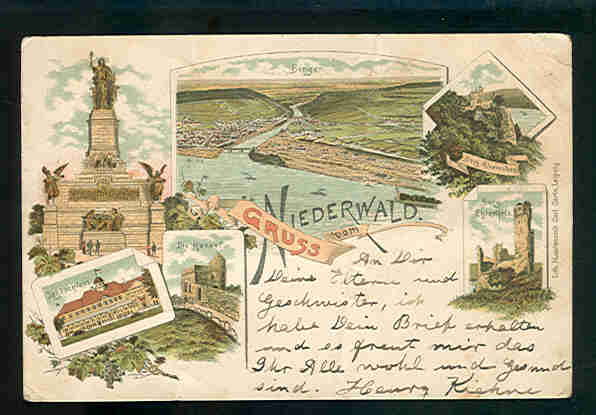 Bingen
Burg Rheinstein
Burg
Ehrenfels
GRUSS vom NIEDERWALD.
Die Rossel
Jagdschloss
Lith. Kunstanstalt Carl Garte, Leipzig
An Dir
Deine Eltern und
Geschwister, ich
habe Dein Brief erhalten
und es freut mir das
Ihr Alle wohl und Gesund
sind. Henry Kiehne